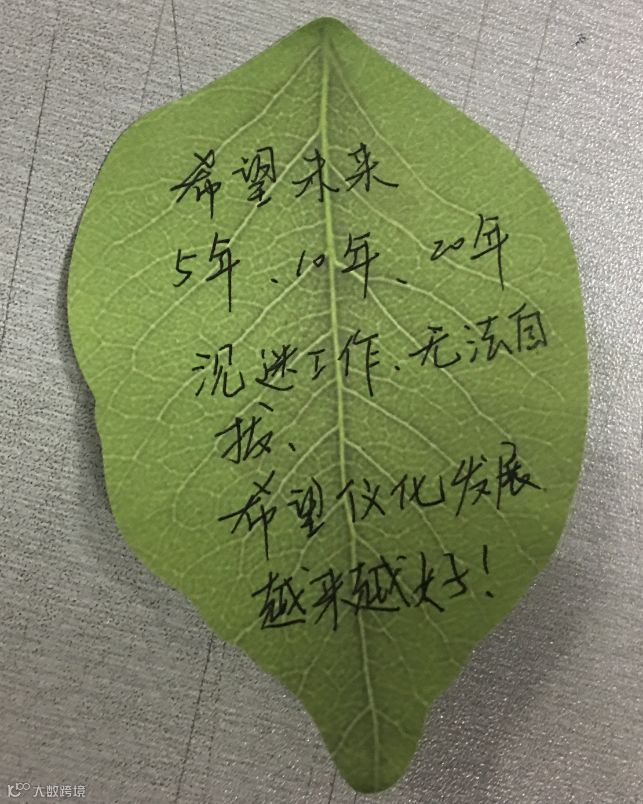 希望未来
5年、10年、20年
沉迷工作、无法自
拔、
希望仪化发展
越来越好!
大数跨境